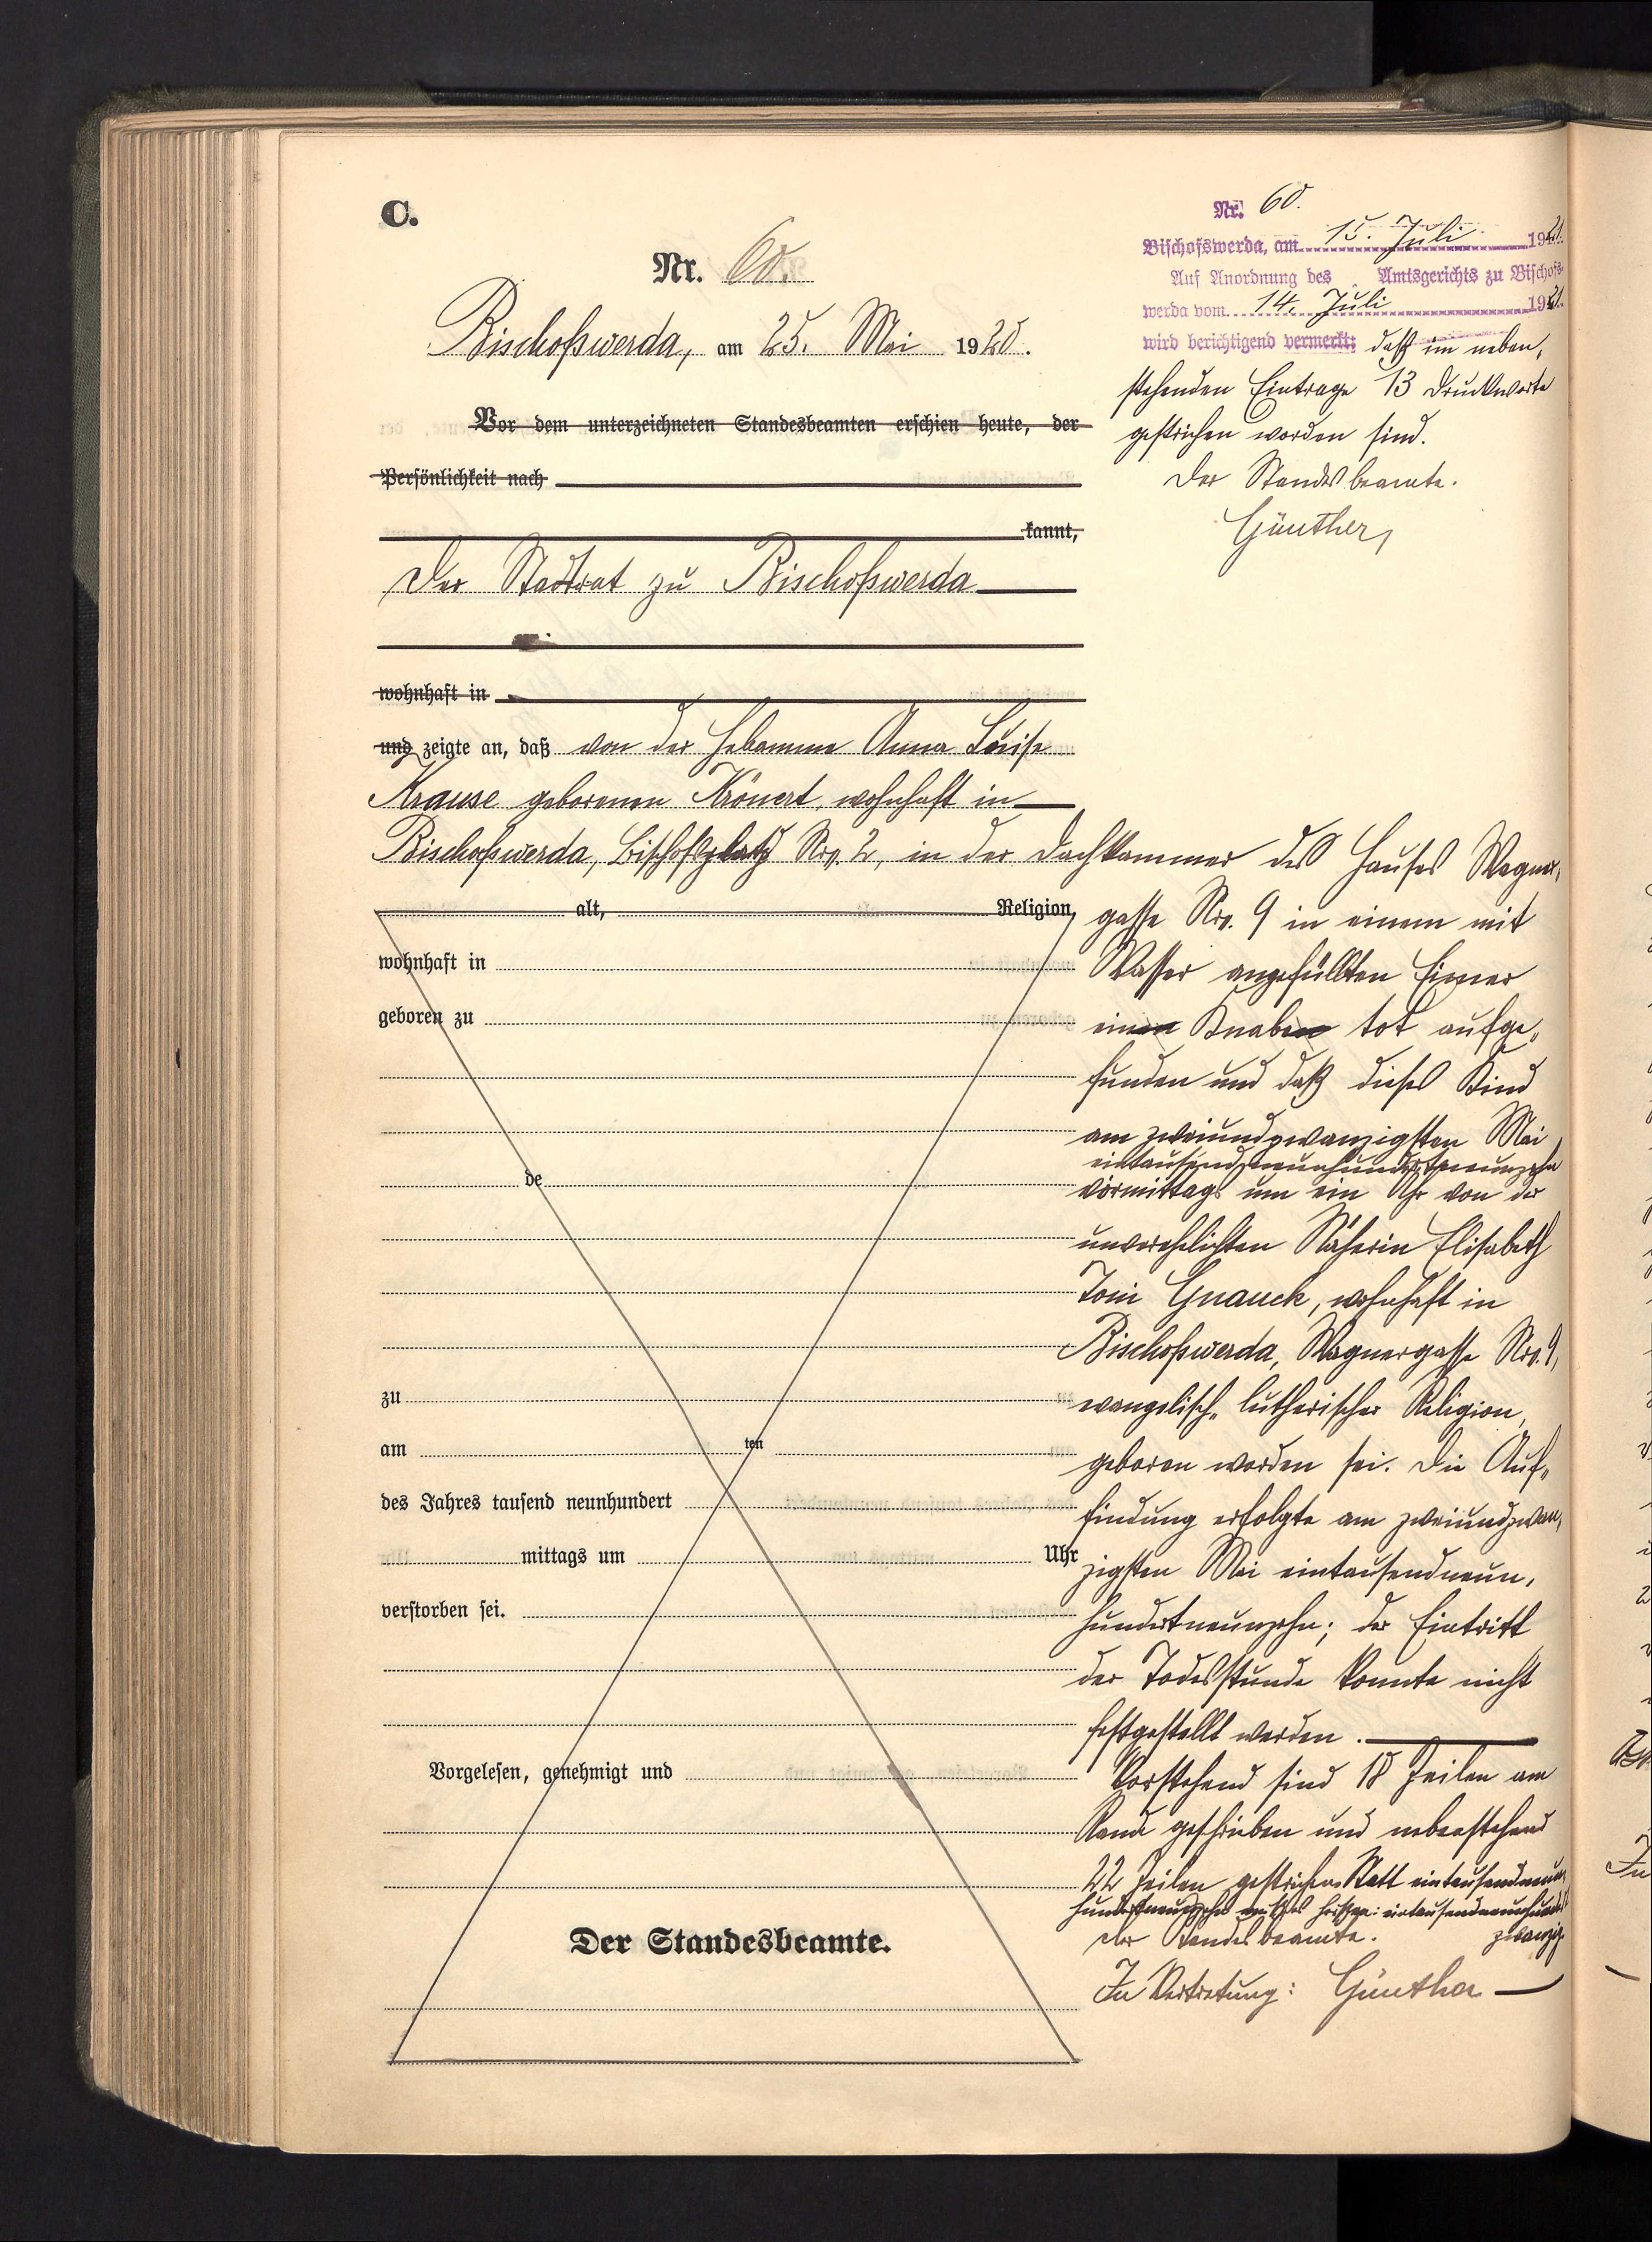 C.
Nr. 60.
Bischofswerda, am 25. Mai 1920.
Vor dem unterzeichneten Standesbeamten erschien heute, der
Persönlichkeit nach
kannt,
Der Stadtrat zu Bischofswerda
wohnhaft in
und zeigte an, daß von der Hebamme Anna Luise
Krause geborenen Krönert, wohnhaft in
Bischofswerda, Bischofsplatz Nro. 2, in der Dachkammer des Hauses Wagner-
gasse Nro. 9 in einem mit
Wasser angefüllten Eimer
einen Knaben tot aufge-
funden und daß dieses Kind
am zweiundzwanzigsten Mai
eintausendneunhundertneunzehn
vormittags um ein Uhr von der
unverehelichten Näherin Elisabeth
Toni Gnauck, wohnhaft in
Bischofswerda, Wagnergasse Nro. 9,
evangelisch-lutherischer Religion,
geboren worden sei. Die Auf-
findung erfolgte am zweiundzwan-
zigsten Mai eintausendneun-
hundertneunzehn; der Eintritt
der Todesstunde konnte nicht
festgestellt werden.
Vorstehend sind 18 Zeilen am
Rande geschrieben und nebenstehend
22 Zeilen gestrichen. Statt eintausendneun-
hundertneunzehn muß es heißen: eintausendneunhundert
zwanzig.
Der Standesbeamte.
In Vertretung: Günther
alt, Religion,
wohnhaft in
geboren zu
de
zu
am ten
des Jahres tausend neunhundert
mittags um Uhr
verstorben sei.
Vorgelesen, genehmigt und
Der Standesbeamte.
Nr. 60.
Bischofswerda, am 15. Juli 1921.
Auf Anordnung des Amtsgerichts zu Bischofs-
werda vom 14. Juli 1921.
wird berichtigend vermerkt: daß im neben-
stehenden Eintrage 13 Druckworte
gestrichen worden sind.
Der Standesbeamte.
Günther